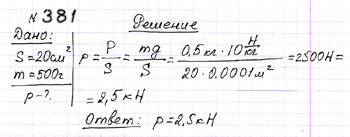 № 381
Решение
Дано:
S = 20см²
m = 500г
p - ?
p = P/S = mg/S = 0,5кг · 10 Н/кг / 20 · 0,0001м² = 2500Н =
= 2,5кН
Ответ: p = 2,5кН